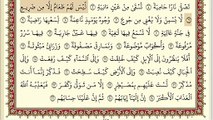 تَصْلَىٰ نَارًا حَامِيَةً ۝ تُسْقَىٰ مِنْ عَيْنٍ آنِيَةٍ ۝ لَّيْسَ لَهُمْ طَعَامٌ إِلَّا مِن ضَرِيعٍ
۝ لَّا يُسْمِنُ وَلَا يُغْنِي مِن جُوعٍ ۝ وُجُوهٌ يَوْمَئِذٍ نَّاعِمَةٌ ۝ لِّسَعْيِهَا رَاضِيَةٌ
۝ فِي جَنَّةٍ عَالِيَةٍ ۝ لَّا تَسْمَعُ فِيهَا لَاغِيَةً ۝ فِيهَا عَيْنٌ جَارِيَةٌ ۝ فِيهَا سُرُرٌ
مَّرْفُوعَةٌ ۝ وَأَكْوَابٌ مَّوْضُوعَةٌ ۝ وَنَمَارِقُ مَصْفُوفَةٌ
۝ وَزَرَابِيُّ مَبْثُوثَةٌ ۝ أَفَلَا يَنظُرُونَ إِلَى الْإِبِلِ كَيْفَ خُلِقَتْ ۝ وَإِلَى السَّمَاءِ
كَيْفَ رُفِعَتْ ۝ وَإِلَى الْجِبَالِ كَيْفَ نُصِبَتْ ۝ وَإِلَى الْأَرْضِ كَيْفَ سُطِحَتْ
۝ فَذَكِّرْ إِنَّمَا أَنتَ مُذَكِّرٌ ۝ لَّسْتَ عَلَيْهِم بِمُصَيْطِرٍ ۝ إِلَّا مَن تَوَلَّىٰ وَكَفَرَ ۝ فَيُعَذِّبُهُ اللَّهُ
الْعَذَابَ الْأَكْبَرَ ۝ إِنَّ إِلَيْنَا إِيَابَهُمْ ۝ ثُمَّ إِنَّ عَلَيْنَا حِسَابَهُم ۝